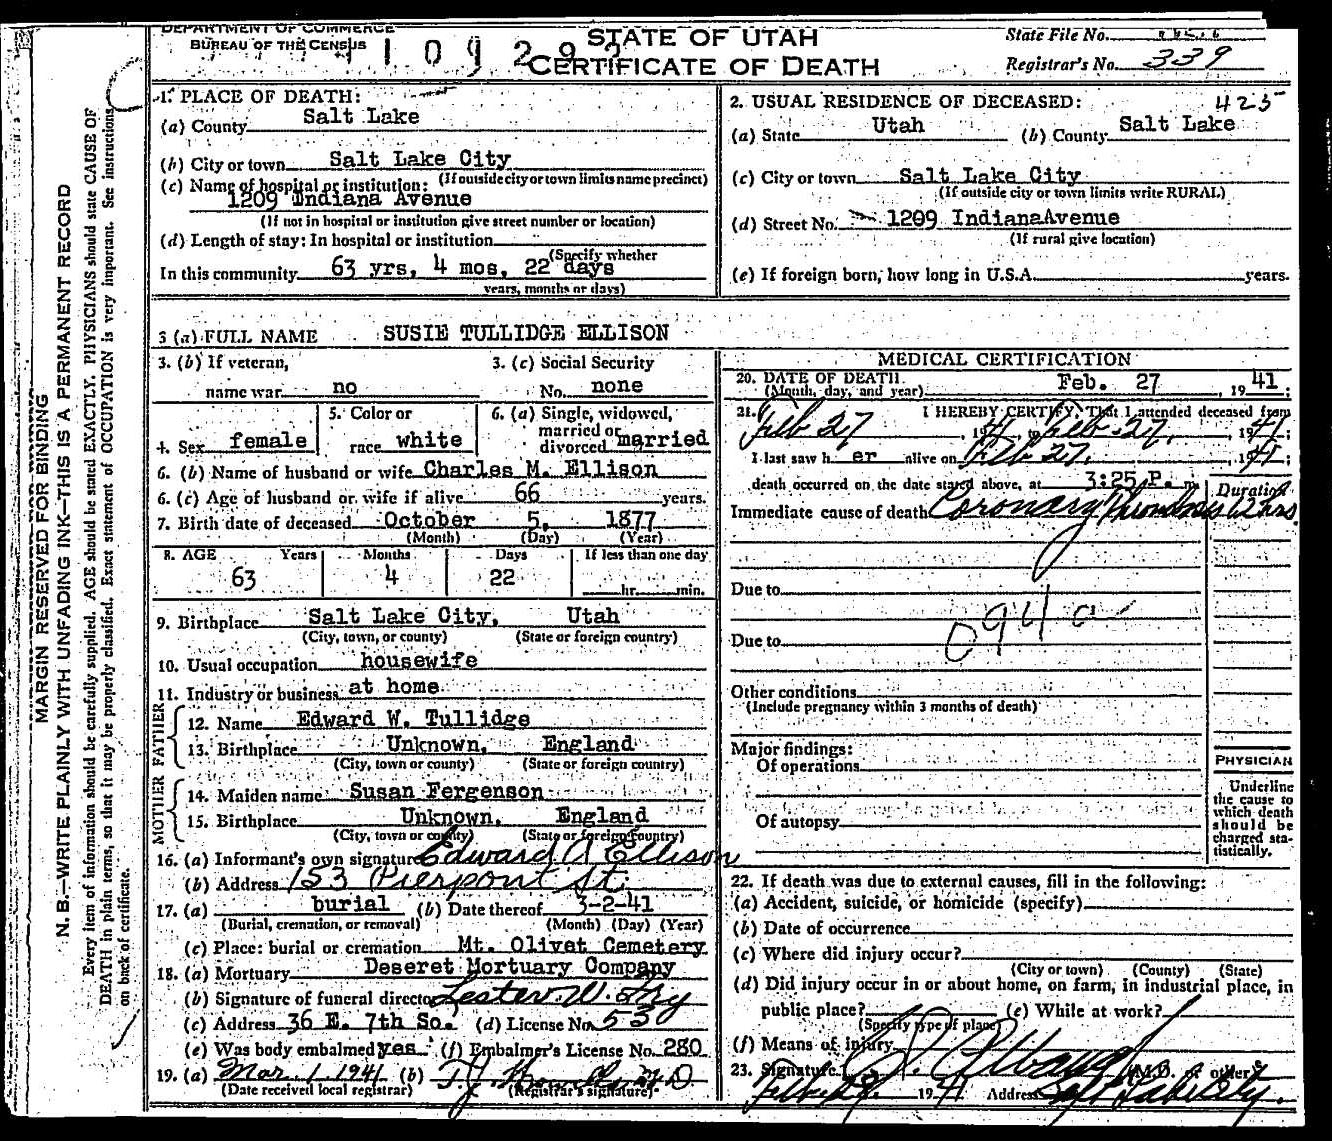 DEPARTMENT OF COMMERCE
BUREAU OF THE CENSUS
STATE OF UTAH
CERTIFICATE OF DEATH
State File No.
Registrar's No. 339
MARGIN RESERVED FOR BINDING
N. B.—WRITE PLAINLY WITH UNFADING INK—THIS IS A PERMANENT RECORD
Every item of information should be carefully supplied. AGE should be stated EXACTLY. PHYSICIANS should state CAUSE OF
DEATH in plain terms, so that it may be properly classified. Exact statement of OCCUPATION is very important. See instructions
on back of certificate.
1. PLACE OF DEATH:
(a) County Salt Lake
(b) City or town Salt Lake City
(If outside city or town limits name precinct)
(c) Name of hospital or institution:
1209 Indiana Avenue
(If not in hospital or institution give street number or location)
(d) Length of stay: In hospital or institution
(Specify whether
In this community 63 yrs, 4 mos, 22 days
years, months or days)
2. USUAL RESIDENCE OF DECEASED: 425
(a) State Utah (b) County Salt Lake
(c) City or town Salt Lake City
(If outside city or town limits write RURAL)
(d) Street No. 1209 IndianaAvenue
(If rural give location)
(e) If foreign born, how long in U.S.A. years.
3 (a) FULL NAME SUSIE TULLIDGE ELLISON
3. (b) If veteran, 3. (c) Social Security
name war no No. none
4. Sex female 5. Color or race white 6. (a) Single, widowed, married or divorced married
6. (b) Name of husband or wife Charles M. Ellison
6. (c) Age of husband or wife if alive 66 years.
7. Birth date of deceased October 5, 1877
(Month) (Day) (Year)
8. AGE Years Months Days If less than one day
63 4 22 hr. min.
9. Birthplace Salt Lake City, Utah
(City, town, or county) (State or foreign country)
10. Usual occupation housewife
11. Industry or business at home
FATHER
12. Name Edward W. Tullidge
13. Birthplace Unknown, England
(City, town or county) (State or foreign country)
MOTHER
14. Maiden name Susan Fergenson
15. Birthplace Unknown, England
(City, town or county) (State or foreign country)
16. (a) Informant's own signature Edward A Ellison
(b) Address 153 Pierpont St.
17. (a) burial (b) Date thereof 3-2-41
(Burial, cremation, or removal) (Month) (Day) (Year)
(c) Place: burial or cremation Mt. Olivet Cemetery
18. (a) Mortuary Deseret Mortuary Company
(b) Signature of funeral director Lester W.
(c) Address 36 E. 7th So. (d) License No. 53
(e) Was body embalmed yes (f) Embalmer's License No. 280
19. (a) Mar 1 1941 (b)
(Date received local registrar) (Registrar's signature)
MEDICAL CERTIFICATION
20. DATE OF DEATH Feb. 27, 1941;
(Month, day, and year)
21. I HEREBY CERTIFY, That I attended deceased from
Feb 27, 1941, to Feb 27, 1941;
I last saw her alive on Feb 27, 1941;
death occurred on the date stated above, at 3:25 P. m.
Duration
Immediate cause of death Coronary Thrombosis 12 hrs.
Due to
094a
Due to
Other conditions
(Include pregnancy within 3 months of death)
Major findings:
Of operations
Of autopsy
PHYSICIAN
Underline
the cause to
which death
should be
charged sta-
tistically.
22. If death was due to external causes, fill in the following:
(a) Accident, suicide, or homicide (specify)
(b) Date of occurrence
(c) Where did injury occur?
(City or town) (County) (State)
(d) Did injury occur in or about home, on farm, in industrial place, in
public place? (e) While at work?
(Specify type of place)
(f) Means of injury
23. Signature (M.D. or other)
1941 Address Salt Lake City.